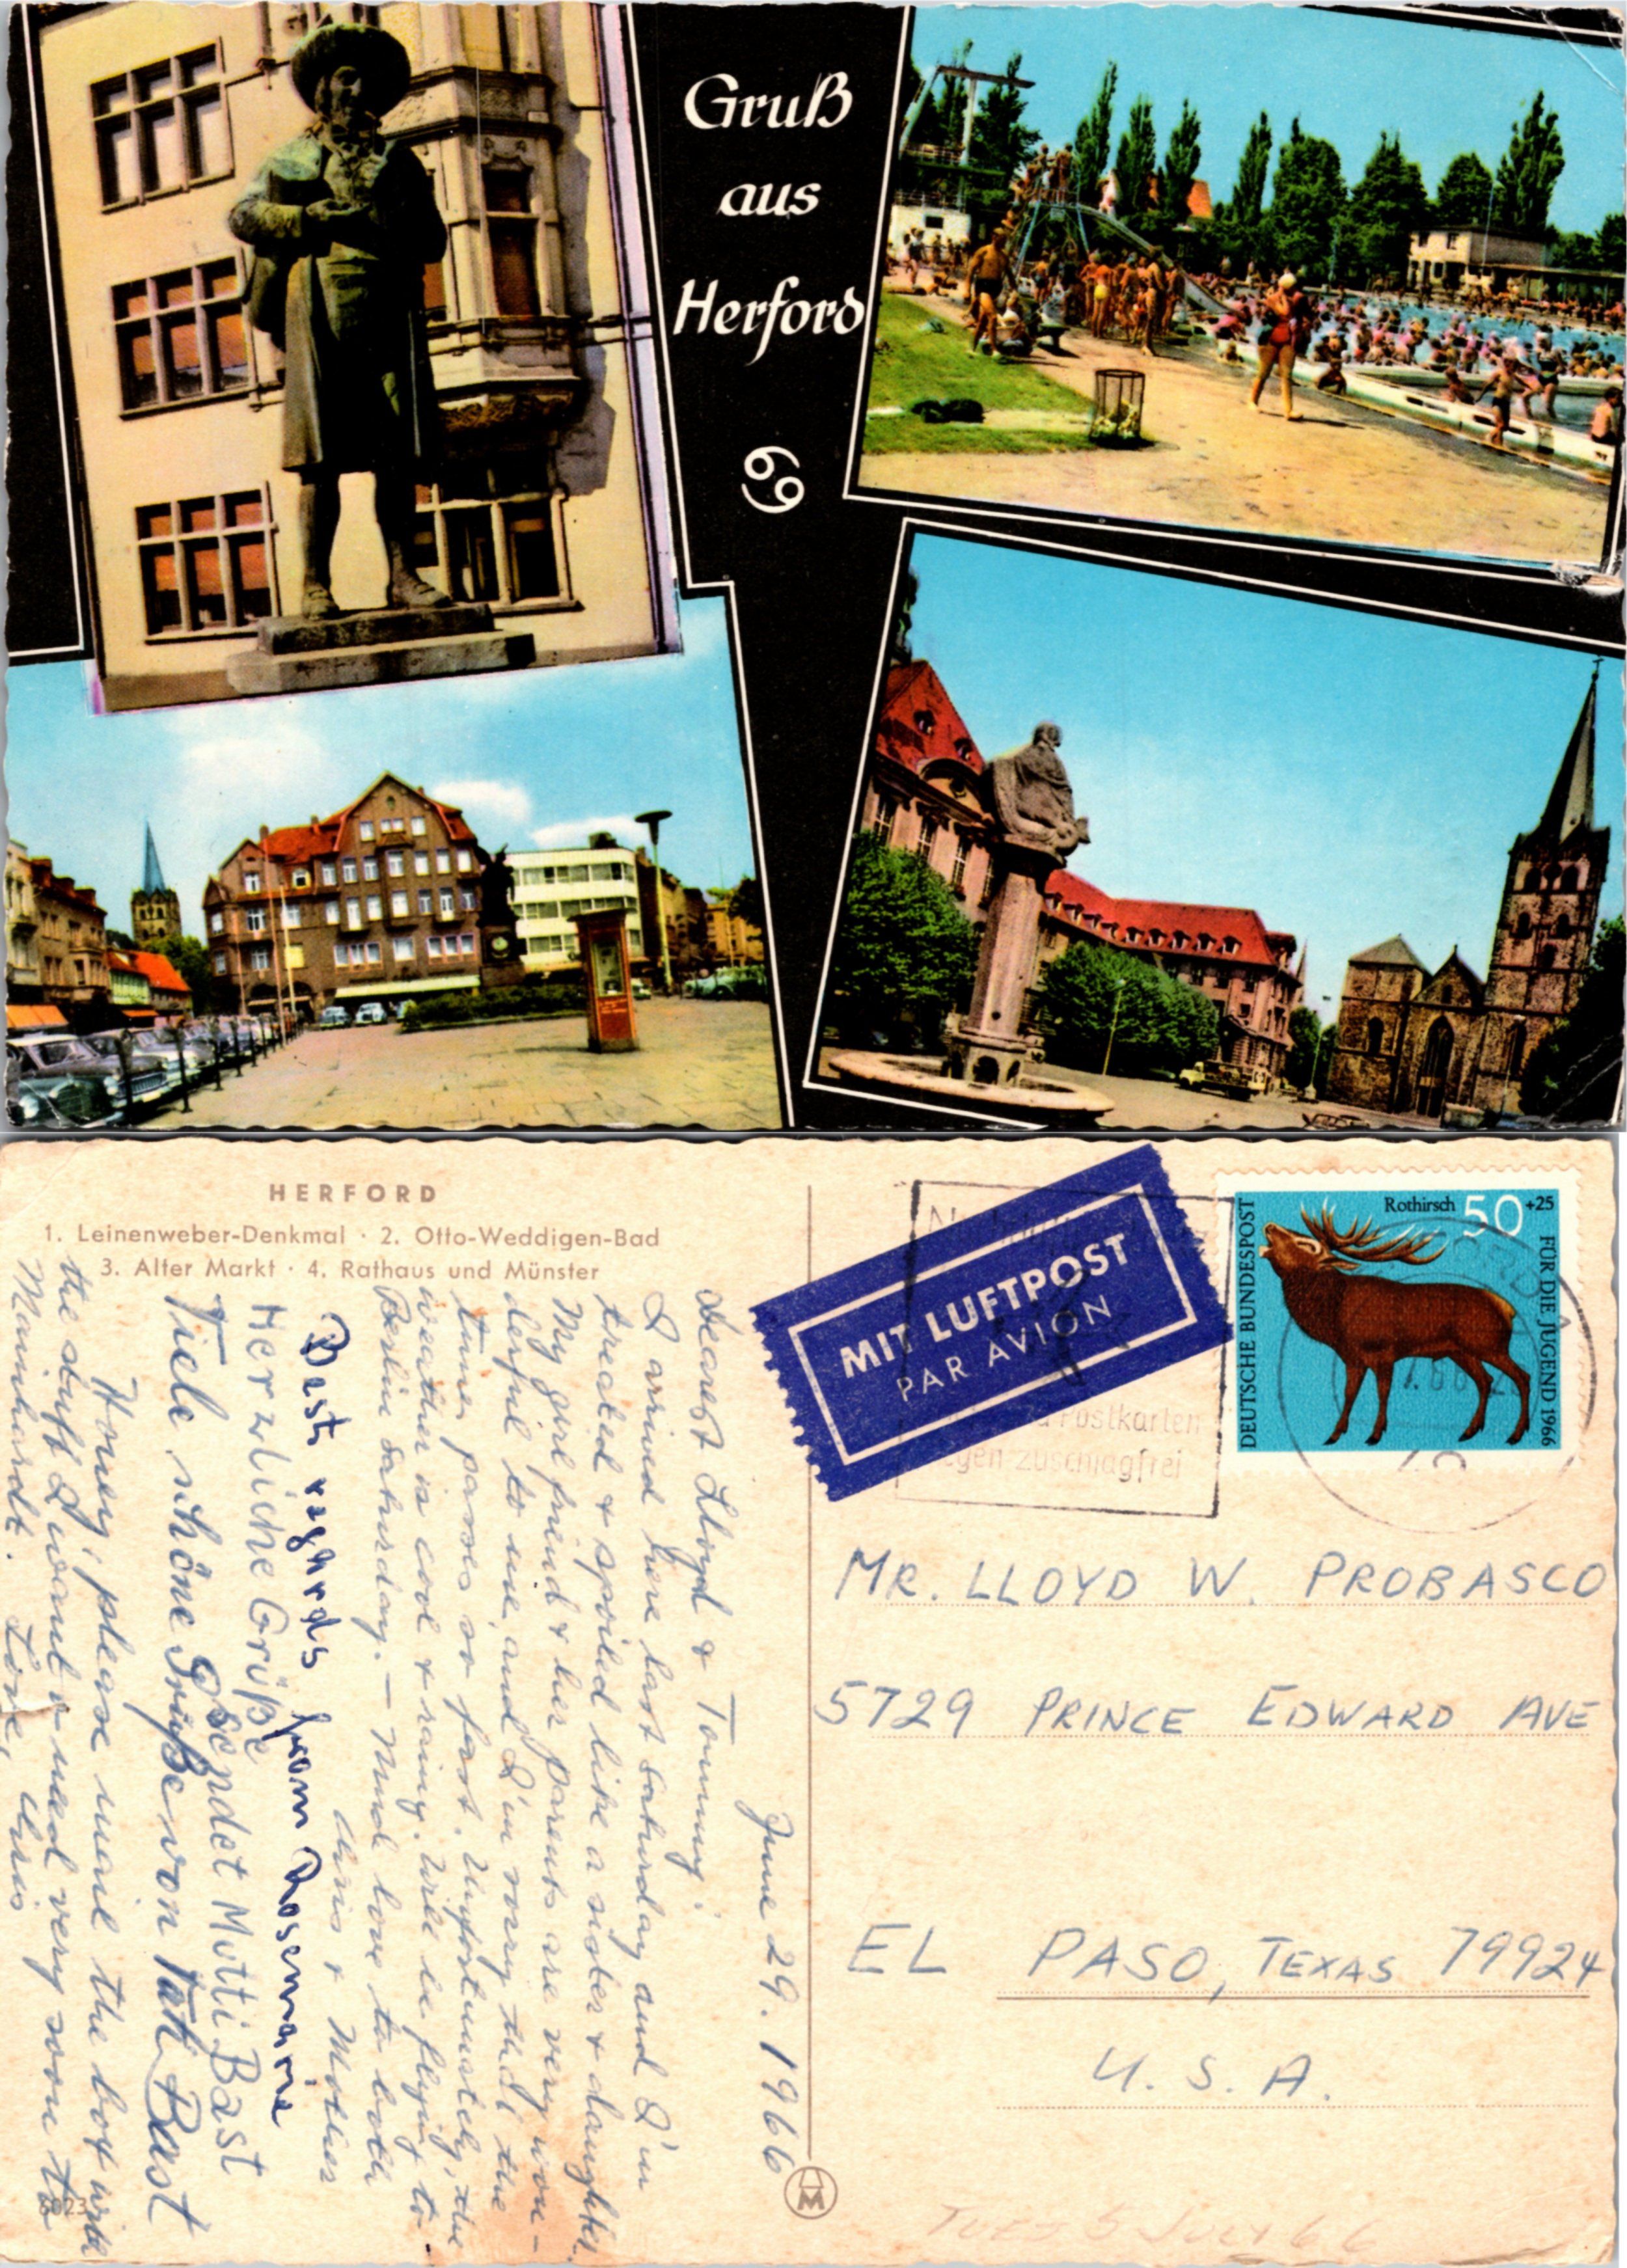 Gruß
aus
Herford
HERFORD
1. Leinenweber-Denkmal · 2. Otto-Weddigen-Bad
3. Alter Markt · 4. Rathaus und Münster
June 29. 1966
Dearest Lloyd & Tommy:
I arrived here last Saturday and I'm
treated & spoiled like a sister & daughter.
My girl friend & her parents are very won-
derful to me, and I'm sorry that the
time passes so fast. Unfortunately, the
weather is cool & rainy. Will be flying to
Berlin Saturday. – Much love to both
Chris & Mother
Best regards from Rosemarie
Herzliche Grüße
sendet Mutti Bast
Viele schöne Grüße von Bast
Honey, please mail the box with
the stuff I want & need very soon to
Mannhardt. Love, Chris
6023
MIT LUFTPOST
PAR AVION
Postkarten
zuschlagfrei
Rothirsch 50 +25
DEUTSCHE BUNDESPOST
FÜR DIE JUGEND 1966
MR. LLOYD W. PROBASCO
5729 PRINCE EDWARD AVE
EL PASO, TEXAS 79924
U.S.A.
M
TUES 5 JULY 66